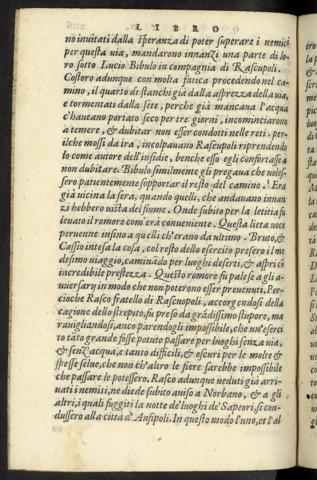 LIBRO
no invitati dalla speranza di poter superare i nemici
per questa via, mandarono innanzi una parte di lo
ro sotto Lucio Bibulo in compagnia di Rascupoli.
Costoro adunque con molta fatica procedendo nel ca
mino, il quarto dì stanchi già dalla asprezza della via,
e tormentati dalla sete, perche già mancava l'acqua
c'haveano portato seco per tre giorni, incominciarono
a temere, & dubitar non esser condotti nelle reti. per-
ilche mossi da ira, incolpavano Rascupoli riprendendo
lo come autore dell'insidie, benche esso egli confortasse a
non dubitare. Bibulo similmente gli pregava che voles-
sero patientemente sopportar il resto del camino. Era
già vicina la sera, quando quelli, che andavano innan
zi hebbero vista del fiume. Onde subito per la letitia fu
levato il romore com'era conveniente. Questa lieta voce
pervenne insino a quelli ch'erano da ultimo. Bruto, &
Cassio intesa la cosa, col resto dello esercito presero il me
desimo viaggio, caminādo per luoghi deserti, & aspri cō
incredibile prestezza. Questo romore fu palese a gli a-
versary in modo che non poterono esser prevenuti. Per-
cioche Rasco fratello di Rascupoli, accorgendosi della
cagione dello strepito, fu preso da grādissimo stupore, ma
ravigliandosi, anco parendogli impossibile, che un'eserci
to tato grande fusse potuto passare per luoghi senza via,
& senz'acqua, e tanto difficili, & oscuri per le molte &
spesse selve, che non ch'altro le fiere sarebbe impossibile
che passare le potessero. Rasco adunque veduti già arri-
vati i nemisi, ne die de subito aviso a Norbano, & a gli
altri, i quali fuggiti la notte de' luoghi de' Sapeori, si con-
dussero alla città d'Anfipoli. In questo modo l'uno, et l'al